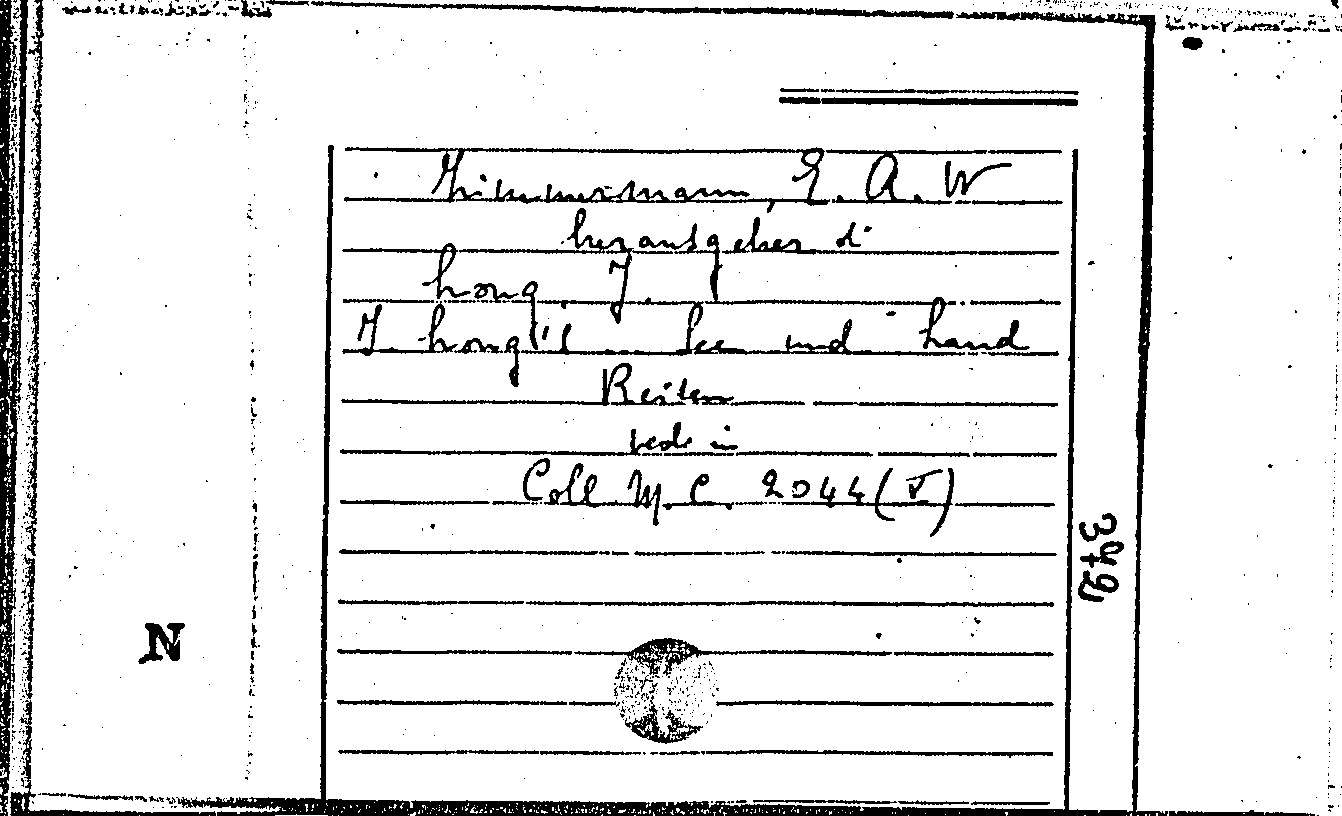 Zimmermann, E. A. W
herausgeber di
Long, J.
J. Long's See und Land
Reisen
vedi in
Coll. M. C. 2044 (V)
342
N